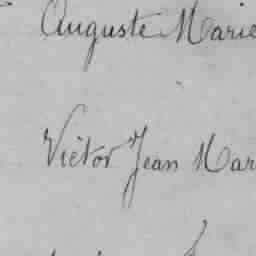 Auguste Marie
Victor Jean Mar